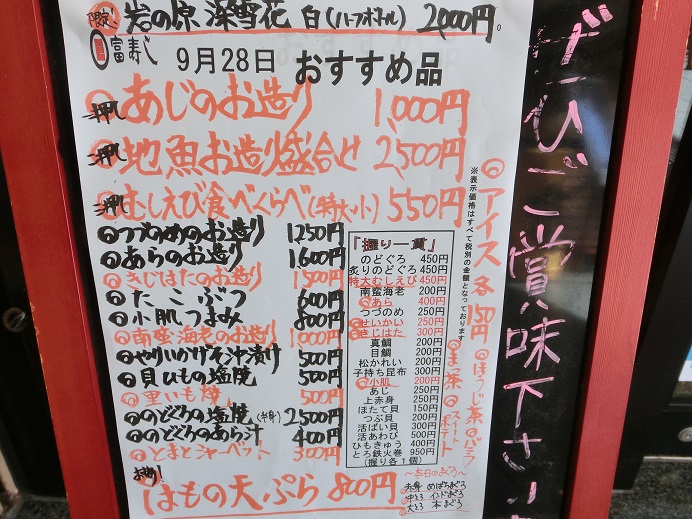 限定! 岩の原 深雪花 白(ハーフボトル) 2,000円。
富寿し 9月28日 おすすめ品
押し あじのお造り 1,000円
押し 地魚お造り盛合せ 2,500円
押し むしえび食べくらべ(特大ト小) 550円
つづのめのお造り 1250円
あらのお造り 1600円
きじはたのお造り 1500円
たこぶつ 600円
小肌つまみ 800円
南蛮海老のお造り 1000円
やりいかげそ汁漬け 500円
貝ひもの塩焼 500円
里いも焼 500円
のどぐろの塩焼(半身) 2500円
のどぐろのあら汁 400円
とまとシャーベット 300円
はもの天ぷら 800円
「握り一貫」
のどぐろ 450円
炙りのどぐろ 450円
特大むしえび 450円
南蛮海老 200円
あら 400円
つづのめ 250円
せいかい 250円
きじはた 300円
真鯛 200円
目鯛 200円
松かれい 200円
子持ち昆布 300円
小肌 200円
あじ 250円
上赤身 250円
ほたて貝 150円
つぶ貝 200円
活ばい貝 300円
活あわび 500円
ひもきゅう 400円
とろ鉄火巻 950円
(握り各1個)
※表示価格はすべて税別の金額となっております
アイス各150円
ほうじ茶
バニラ
抹茶
スイートポテト
~本日のまぐろ~
赤身 めばちまぐろ
中とろ インドまぐろ
大とろ 本まぐろ
ぜひご賞味下さい